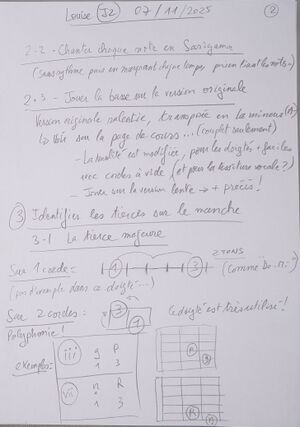 Louise (J2) 07/11/2025 (2)
2-2 - Chanter chaque note en Sarigama
(sans rythme, puis en marquant chaque temps, puis en lisant les notes)
2.3 - Jouer la basse sur la version originale
Version originale ralentie, transposée en La mineur (A)
↳ Voir sur la page de cours... (couplet seulement)
- La tonalité est modifiée, pour les doigtés + faciles
avec cordes à vide (et pour la tessiture vocale?)
- Jouer sur la version lente → + précis!
(3) Identifier les tierces sur le manche
3-1 La tierce majeure
Sur 1 corde: 1 3 2 TONS
(pas d'exemple dans ce doigté...) (comme Do-Mi)
Sur 2 cordes: 3 1 Ce doigté est très utilisé!
Polyphonie!
exemples= iii g P
1 3
vii n R
1 3
R 3
R